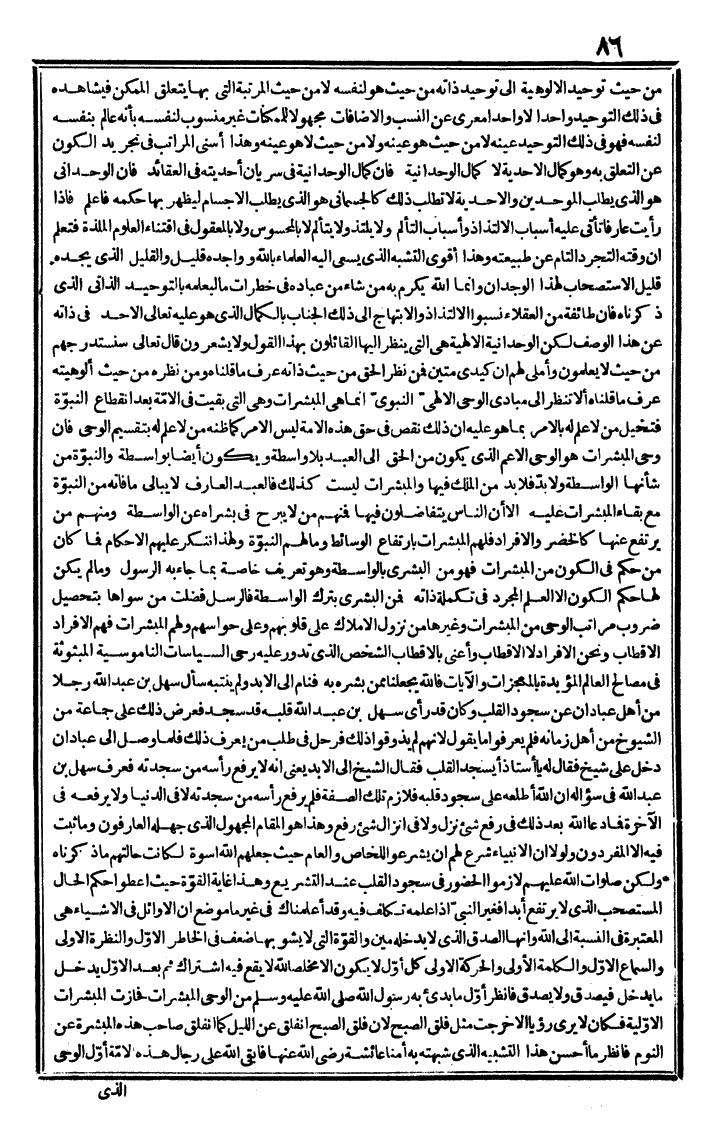 ٨٦
من حيث توحيد الالوهية الى توحيد ذاته من حيث هو لنفسه لا من حيث المرتبة التى بها يتعلق الممكن فيشاهده
فى ذلك التوحيد واحدا لا واحدا معرى عن النسب والاضافات مجهولا للممكنات غير منسوب لنفسه بأنه عالم بنفسه
لنفسه فهو فى ذلك التوحيد عينه لا من حيث هو عينه ولا من حيث لا هو عينه وهذا أسنى المراتب فى تجريد الكون
عن التعلق به وهو كمال الاحدية لا كمال الوحدانية فان كمال الوحدانية فى سريان أحديته فى العقائد فان الوحدانى
هو الذى يطلب الموحدين والاحدية لا تطلب ذلك كالجسمانى هو الذى يطلب الاجسام ليظهر بها حكمه فاعلم فاذا
رأيت عارفا تأتى عليه أسباب الالتذاذ وأسباب التألم ولا يلتذ ولا يتألم لا بالمحسوس ولا بالمعقول فى اقتناء العلوم الملذة فتعلم
ان وقته التجرد التام عن طبيعته وهذا أقوى التشبه الذى يسعى اليه العلماء بالله وواجده قليل والقليل الذى يجده
قليل الاستصحاب لهذا الوجدان وانما الله يكرم به من شاء من عباده فى خطرات ما ليعلمه بالتوحيد الذاتى الذى
ذكرناه فان طائفة من العقلاء نسبوا الالتذاذ والابتهاج الى ذلك الجناب بالكمال الذى هو عليه تعالى الاحد فى ذاته
عن هذا الوصف لكن الوحدانية الالهية هى التى ينظر اليها القائلون بهذا القول ولا يشعرون قال تعالى سنستدرجهم
من حيث لا يعلمون وأملى لهم ان كيدى متين فمن نظر الحق من حيث ذاته عرف ما قلناه ومن نظره من حيث ألوهيته
عرف ما قلناه ألا تنظر الى مبادى الوحى الالهى النبوى انما هى المبشرات وهى التى بقيت فى الامّة بعد انقطاع النبوّة
فتخيل من لا علم له بالامر بما هو عليه ان ذلك نقص فى حق هذه الامة ليس الامر كما ظنه من لا علم له بتقسيم الوحى فان
وحى المبشرات هو الوحى الاعم الذى يكون من الحق الى العبد بلا واسطة ويكون أيضا بواسطة والنبوّة من
شأنها الواسطة ولا بدّ فلا بد من الملك فيها والمبشرات ليست كذلك فالعبد العارف لا يبالى ما فاته من النبوّة
مع بقاء المبشرات عليه الا أن الناس يتفاضلون فيها فمنهم من لا يبرح فى بشراه عن الواسطة ومنهم من
يرتفع عنها كالخضر والافراد فلهم المبشرات بارتفاع الوسائط وما لهم النبوّة ولهذا تنكر عليهم الاحكام فما كان
من حكم فى الكون من المبشرات فهو من البشرى بالواسطة وهو تعريف خاصة بما جاء به الرسول وما لم يكن
لها حكم الكون الا العلم المجرد فى تكملة ذاته فمن البشرى بترك الواسطة فالرسل فضلت من سواها بتحصيل
ضروب مراتب الوحى من المبشرات وغيرها من نزول الاملاك على قلوبهم وعلى حواسهم ولهم المبشرات فهم الافراد
الاقطاب ونحن الافراد لا الاقطاب وأعنى بالاقطاب الشخص الذى تدور عليه رحى السياسات الناموسية المبثوثة
فى مصالح العالم المؤيدة بالمعجزات والآيات فالله يجعلنا ممن بشره به فنام الى الابد ولم ينتبه سأل سهل بن عبد الله رجلا
من أهل عبادان عن سجود القلب وكان قد رأى سهل بن عبد الله قلبه قد سجد فعرض ذلك على جماعة من
الشيوخ من أهل زمانه فلم يعرفوا ما يقول لانهم لم يذوقوا ذلك فرحل فى طلب من يعرف ذلك فلما وصل الى عبادان
دخل على شيخ فقال له يا أستاذ أيسجد القلب فقال الشيخ الى الابد يعنى انه لا يرفع رأسه من سجدته فعرف سهل بن
عبد الله فى سؤاله ان الله أطلعه على سجود قلبه فلازم تلك الصفة فلم يرفع رأسه من سجدته لا فى الدنيا ولا يرفعه فى
الآخرة فما دعا الله بعد ذلك فى رفع شئ نزل ولا فى انزال شئ رفع وهذا هو المقام المجهول الذى جهله العارفون وما ثبت
فيه الا المفردون ولولا ان الانبياء شرع لهم ان يشرعوا للخاص والعام حيث جعلهم الله اسوة لكانت حالتهم ما ذكرناه
ولكن صلوات الله عليهم لازموا الحضور فى سجود القلب عند التشريع وهذا غاية القوّة حيث اعطوا حكم الحال
المستصحب الذى لا يرتفع أبدا فغير النبى اذا علمه تكلف فيه وقد أعلمناك فى غير ما موضع ان الاوائل فى الاشياء هى
المعتبرة فى النسبة الى الله وانها الصدق الذى لا يدخله مين والقوة التى لا يشوبها ضعف فى الخاطر الاوّل والنظرة الاولى
والسماع الاوّل والكلمة الأولى والحركة الاولى كل أوّل لا يكون الا مخلصا لله لا يقع فيه اشتراك ثم بعد الاوّل يدخل
ما يدخل فيصدق ولا يصدق فانظر أوّل ما بدئ به رسول الله صلى الله عليه وسلم من الوحى المبشرات فحازت المبشرات
الاوّلية فكان لا يرى رؤيا الا خرجت مثل فلق الصبح لان فلق الصبح انفلق عن الليل كما انفلق صاحب هذه المبشرة عن
النوم فانظر ما أحسن هذا التشبيه الذى شبهته به أمنا عائشة رضى الله عنها فابقى الله على رجال هذه الامّة أوّل الوحى
الذى